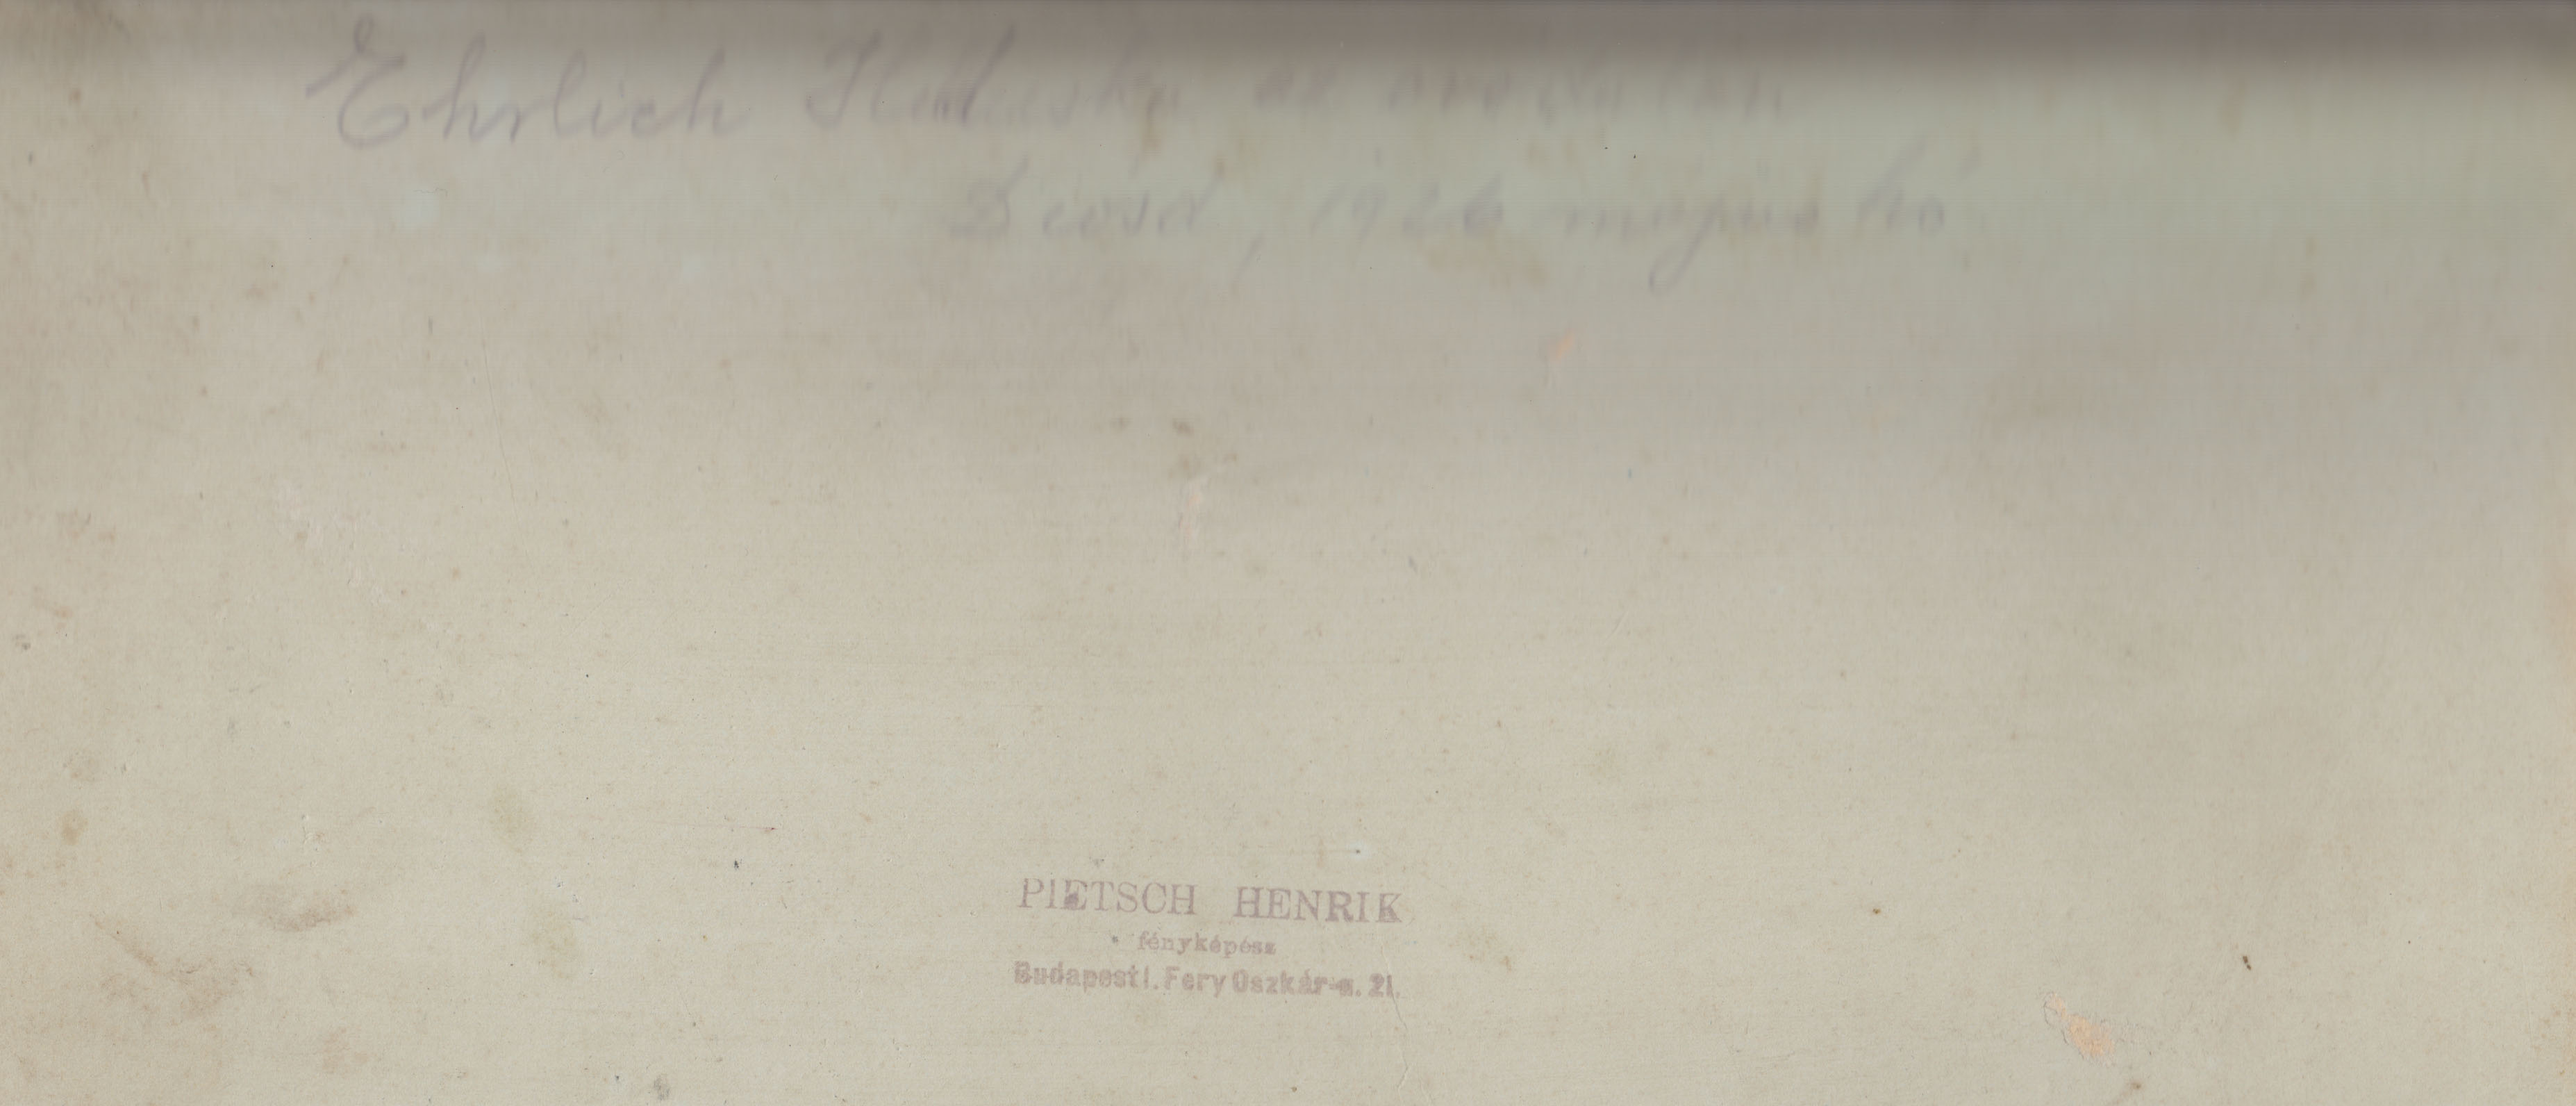 Ehrlich az
Diósd, 1926 május hó
PIETSCH HENRIK
fényképész
Budapest I. Fery Oszkár-u. 21.